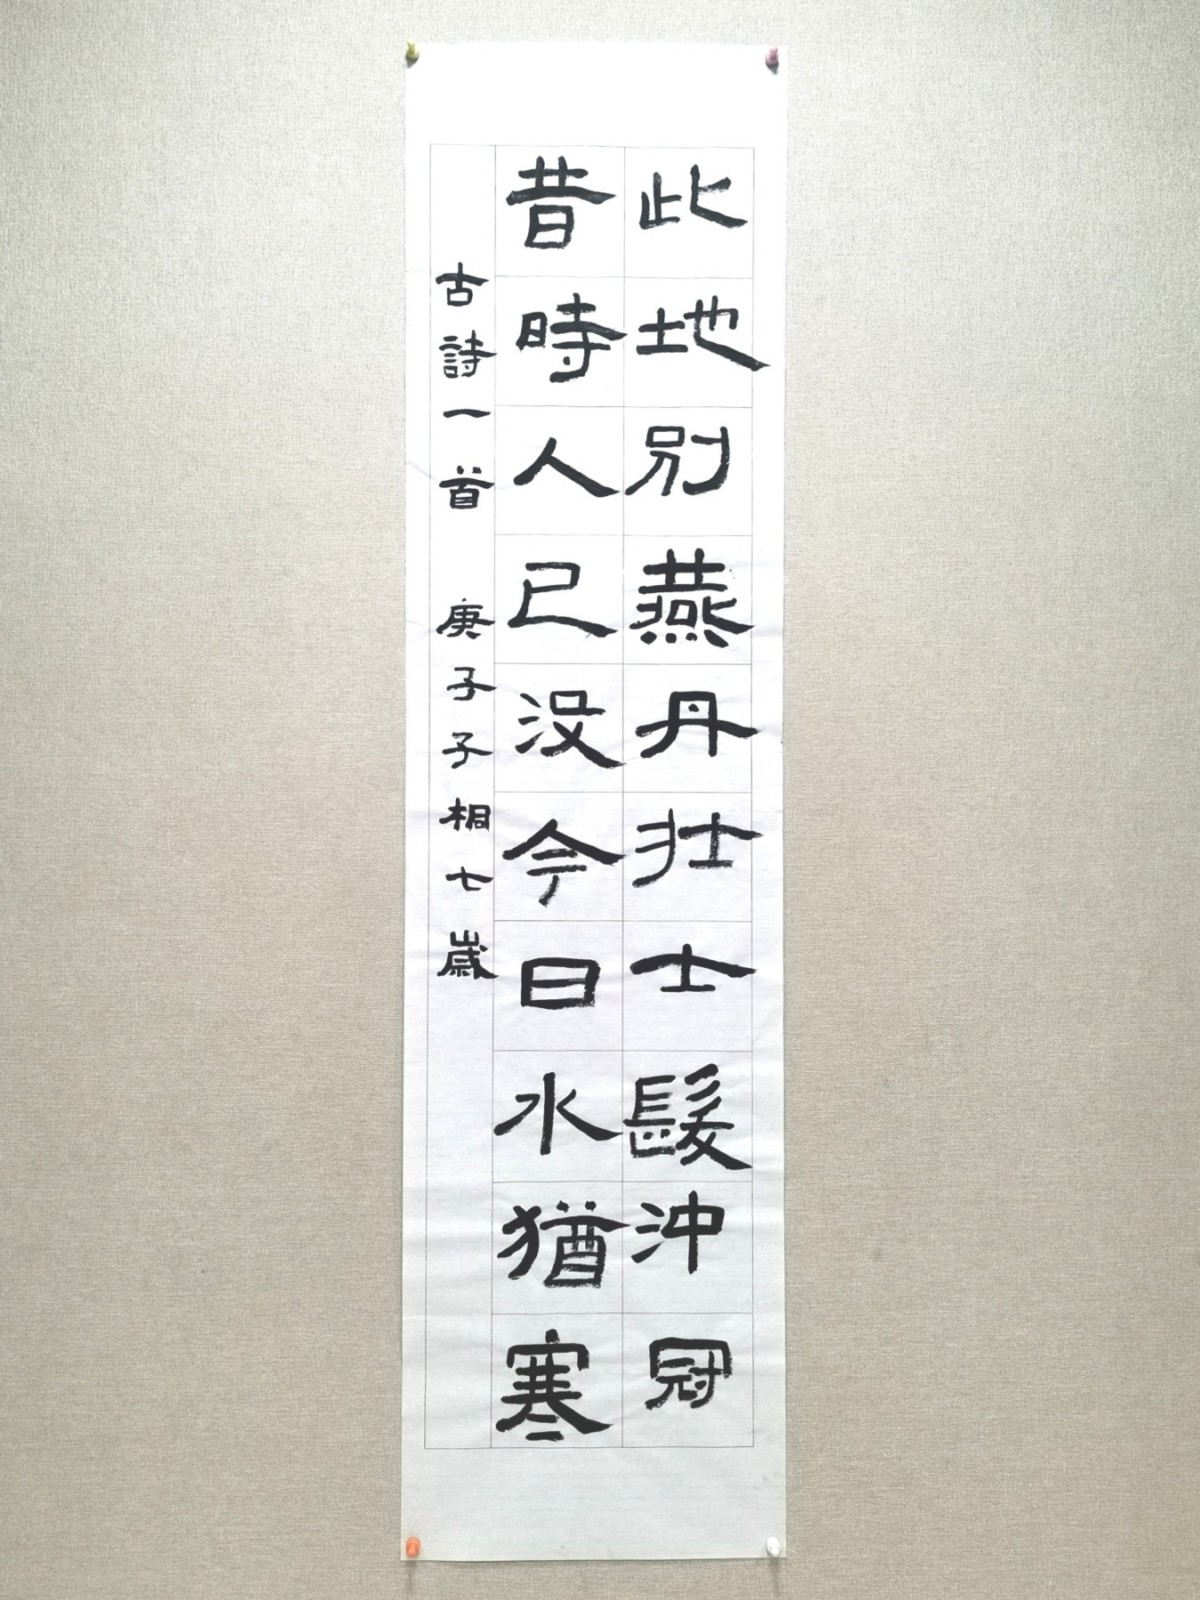 此地別燕丹壮士髮沖冠
昔時人已没今日水猶寒
古詩一首 庚子子桐七歲